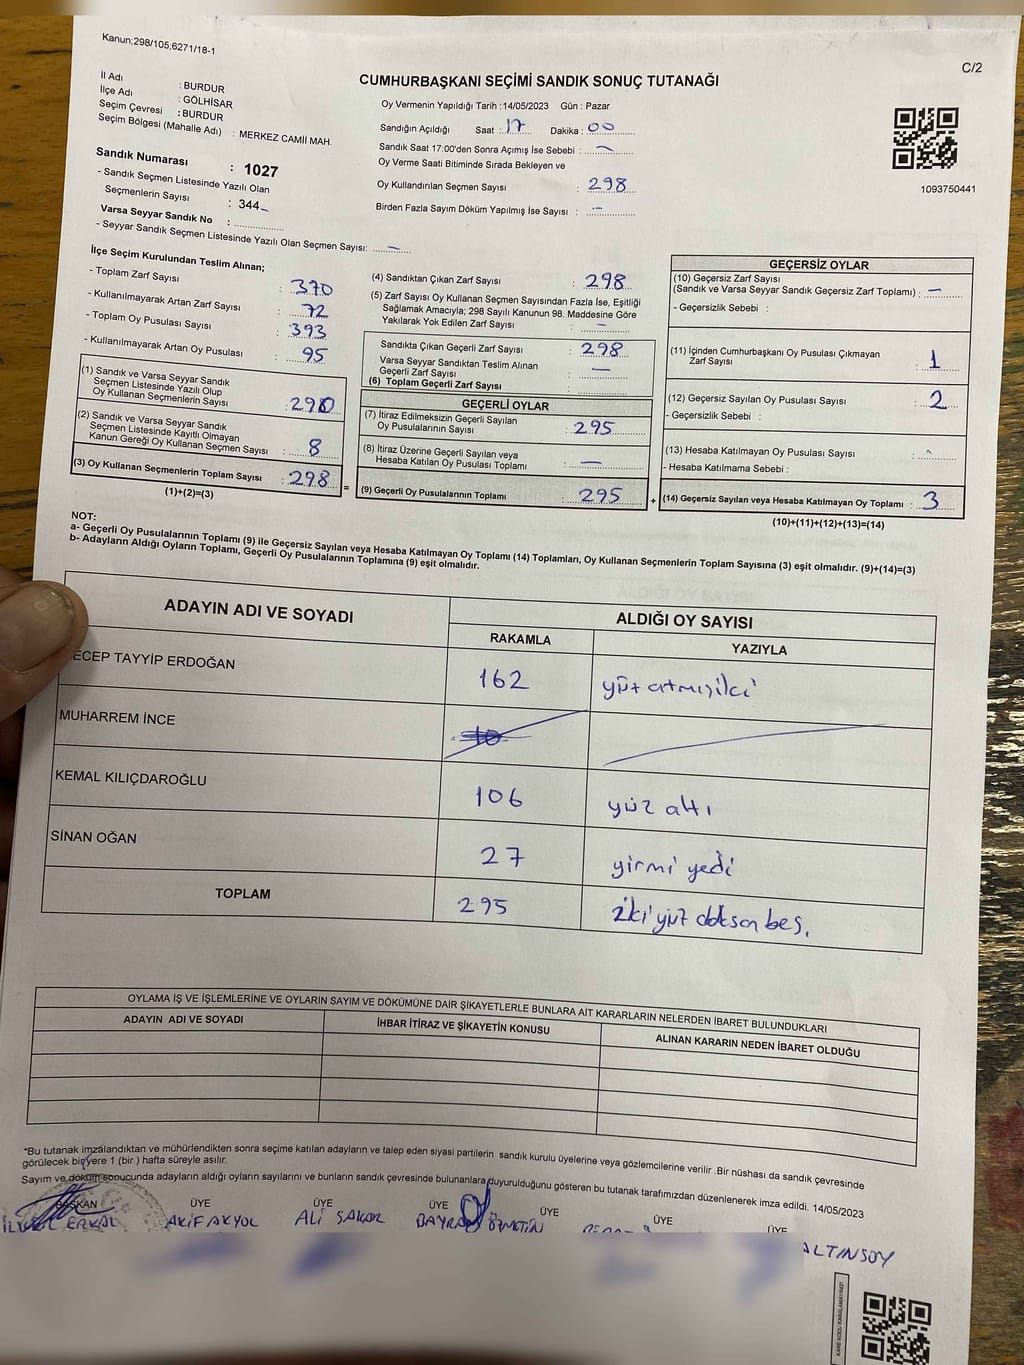 Kanun;298/105;6271/18-1
C/2
CUMHURBAŞKANI SEÇİMİ SANDIK SONUÇ TUTANAĞI
İl Adı : BURDUR
İlçe Adı : GÖLHİSAR
Seçim Çevresi : BURDUR
Seçim Bölgesi (Mahalle Adı) : MERKEZ CAMİİ MAH.
Sandık Numarası : 1027
- Sandık Seçmen Listesinde Yazılı Olan
Seçmenlerin Sayısı : 344
Varsa Seyyar Sandık No :
- Seyyar Sandık Seçmen Listesinde Yazılı Olan Seçmen Sayısı: –
Oy Vermenin Yapıldığı Tarih :14/05/2023 Gün : Pazar
Sandığın Açıldığı Saat : 17 Dakika : 00
Sandık Saat 17:00'den Sonra Açımış İse Sebebi : –
Oy Verme Saati Bitiminde Sırada Bekleyen ve
Oy Kullandırılan Seçmen Sayısı : 298
Birden Fazla Sayım Döküm Yapılmış İse Sayısı : –
1093750441
İlçe Seçim Kurulundan Teslim Alınan;
- Toplam Zarf Sayısı : 370
- Kullanılmayarak Artan Zarf Sayısı : 72
- Toplam Oy Pusulası Sayısı : 393
- Kullanılmayarak Artan Oy Pusulası : 95
(1) Sandık ve Varsa Seyyar Sandık
Seçmen Listesinde Yazılı Olup
Oy Kullanan Seçmenlerin Sayısı : 290
(2) Sandık ve Varsa Seyyar Sandık
Seçmen Listesinde Kayıtlı Olmayan
Kanun Gereği Oy Kullanan Seçmen Sayısı : 8
(3) Oy Kullanan Seçmenlerin Toplam Sayısı : 298 =
(1)+(2)=(3)
(4) Sandıktan Çıkan Zarf Sayısı : 298
(5) Zarf Sayısı Oy Kullanan Seçmen Sayısından Fazla İse, Eşitliği
Sağlamak Amacıyla; 298 Sayılı Kanunun 98. Maddesine Göre
Yakılarak Yok Edilen Zarf Sayısı : –
Sandıkta Çıkan Geçerli Zarf Sayısı : 298
Varsa Seyyar Sandıktan Teslim Alınan
Geçerli Zarf Sayısı : –
(6) Toplam Geçerli Zarf Sayısı :
GEÇERLİ OYLAR
(7) İtiraz Edilmeksizin Geçerli Sayılan
Oy Pusulalarının Sayısı : 295
(8) İtiraz Üzerine Geçerli Sayılan veya
Hesaba Katılan Oy Pusulası Toplamı : –
(9) Geçerli Oy Pusulalarının Toplamı : 295 +
GEÇERSİZ OYLAR
(10) Geçersiz Zarf Sayısı
(Sandık ve Varsa Seyyar Sandık Geçersiz Zarf Toplamı) : –
- Geçersizlik Sebebi :
(11) İçinden Cumhurbaşkanı Oy Pusulası Çıkmayan
Zarf Sayısı : 1
(12) Geçersiz Sayılan Oy Pusulası Sayısı : 2
- Geçersizlik Sebebi :
(13) Hesaba Katılmayan Oy Pusulası Sayısı :
- Hesaba Katılmama Sebebi :
(14) Geçersiz Sayılan veya Hesaba Katılmayan Oy Toplamı : 3
(10)+(11)+(12)+(13)=(14)
NOT:
a- Geçerli Oy Pusulalarının Toplamı (9) ile Geçersiz Sayılan veya Hesaba Katılmayan Oy Toplamı (14) Toplamları, Oy Kullanan Seçmenlerin Toplam Sayısına (3) eşit olmalıdır. (9)+(14)=(3)
b- Adayların Aldığı Oyların Toplamı, Geçerli Oy Pusulalarının Toplamına (9) eşit olmalıdır.
ADAYIN ADI VE SOYADI ALDIĞI OY SAYISI
RAKAMLA YAZIYLA
ECEP TAYYİP ERDOĞAN 162 yüz atmışiki
MUHARREM İNCE
KEMAL KILIÇDAROĞLU 106 yüz altı
SİNAN OĞAN 27 yirmi yedi
TOPLAM 295 iki yüz doksan beş.
OYLAMA İŞ VE İŞLEMLERİNE VE OYLARIN SAYIM VE DÖKÜMÜNE DAİR ŞİKAYETLERLE BUNLARA AİT KARARLARIN NELERDEN İBARET BULUNDUKLARI
ADAYIN ADI VE SOYADI İHBAR İTİRAZ VE ŞİKAYETİN KONUSU ALINAN KARARIN NEDEN İBARET OLDUĞU
*Bu tutanak imzalandıktan ve mühürlendikten sonra seçime katılan adayların ve talep eden siyasi partilerin sandık kurulu üyelerine veya gözlemcilerine verilir. Bir nüshası da sandık çevresinde
görülecek bir yere 1 (bir ) hafta süreyle asılır.
Sayım ve döküm sonucunda adayların aldığı oyların sayılarını ve bunların sandık çevresinde bulunanlara duyurulduğunu gösteren bu tutanak tarafımızdan düzenlenerek imza edildi. 14/05/2023
BAŞKAN ÜYE ÜYE ÜYE ÜYE ÜYE ÜYE
ERKAL AKİF AKYOL ALİ ALTINSOY